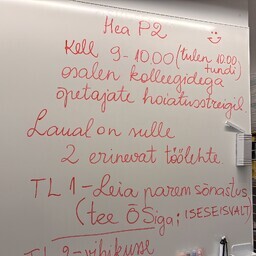 Hea P2
Kell 9-10.00 (tulen 10.00 tundi)
osalen kolleegidega
õpetajate hoiatusstreigil
Laual on sulle
2 erinevat töölehte
TL 1-Leia parem sõnastus
(tee ÕSiga; ISESEISVALT)
TL 2-vihikusse